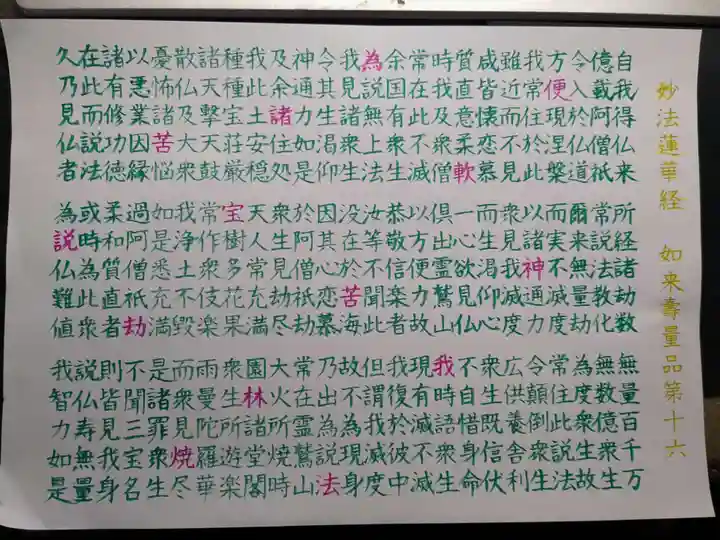 妙法蓮華経　如来壽量品第十六
自我得仏来　所経諸劫数　無量百千万
億載阿僧祇　常説法教化　無数億衆生
令入於仏道　爾来無量劫　為度衆生故
方便現涅槃　而実不滅度　常住此説法
我常住於此　以諸神通力　令顛倒衆生
雖近而不見　衆見我滅度　広供養舎利
咸皆懐恋慕　而生渇仰心　衆生既信伏
質直意柔軟　一心欲見仏　不自惜身命
時我及衆僧　倶出霊鷲山　我時語衆生
常在此不滅　以方便力故　現有滅不滅
余国有衆生　恭敬信楽者　我復於彼中
為説無上法　汝等不聞此　但謂我滅度
我見諸衆生　没在於苦海　故不為現身
令其生渇仰　因其心恋慕　乃出為説法
神通力如是　於阿僧祇劫　常在霊鷲山
及余諸住処　衆生見劫尽　大火所焼時
我此土安穏　天人常充満　園林諸堂閣
種種宝荘厳　宝樹多花果　衆生所遊楽
諸天撃天鼓　常作衆伎楽　雨曼陀羅華
散仏及大衆　我浄土不毀　而衆見焼尽
憂怖諸苦悩　如是悉充満　是諸罪衆生
以悪業因縁　過阿僧祇劫　不聞三宝名
諸有修功徳　柔和質直者　則皆見我身
在此而説法　或時為此衆　説仏寿無量
久乃見仏者　為説仏難値　我智力如是